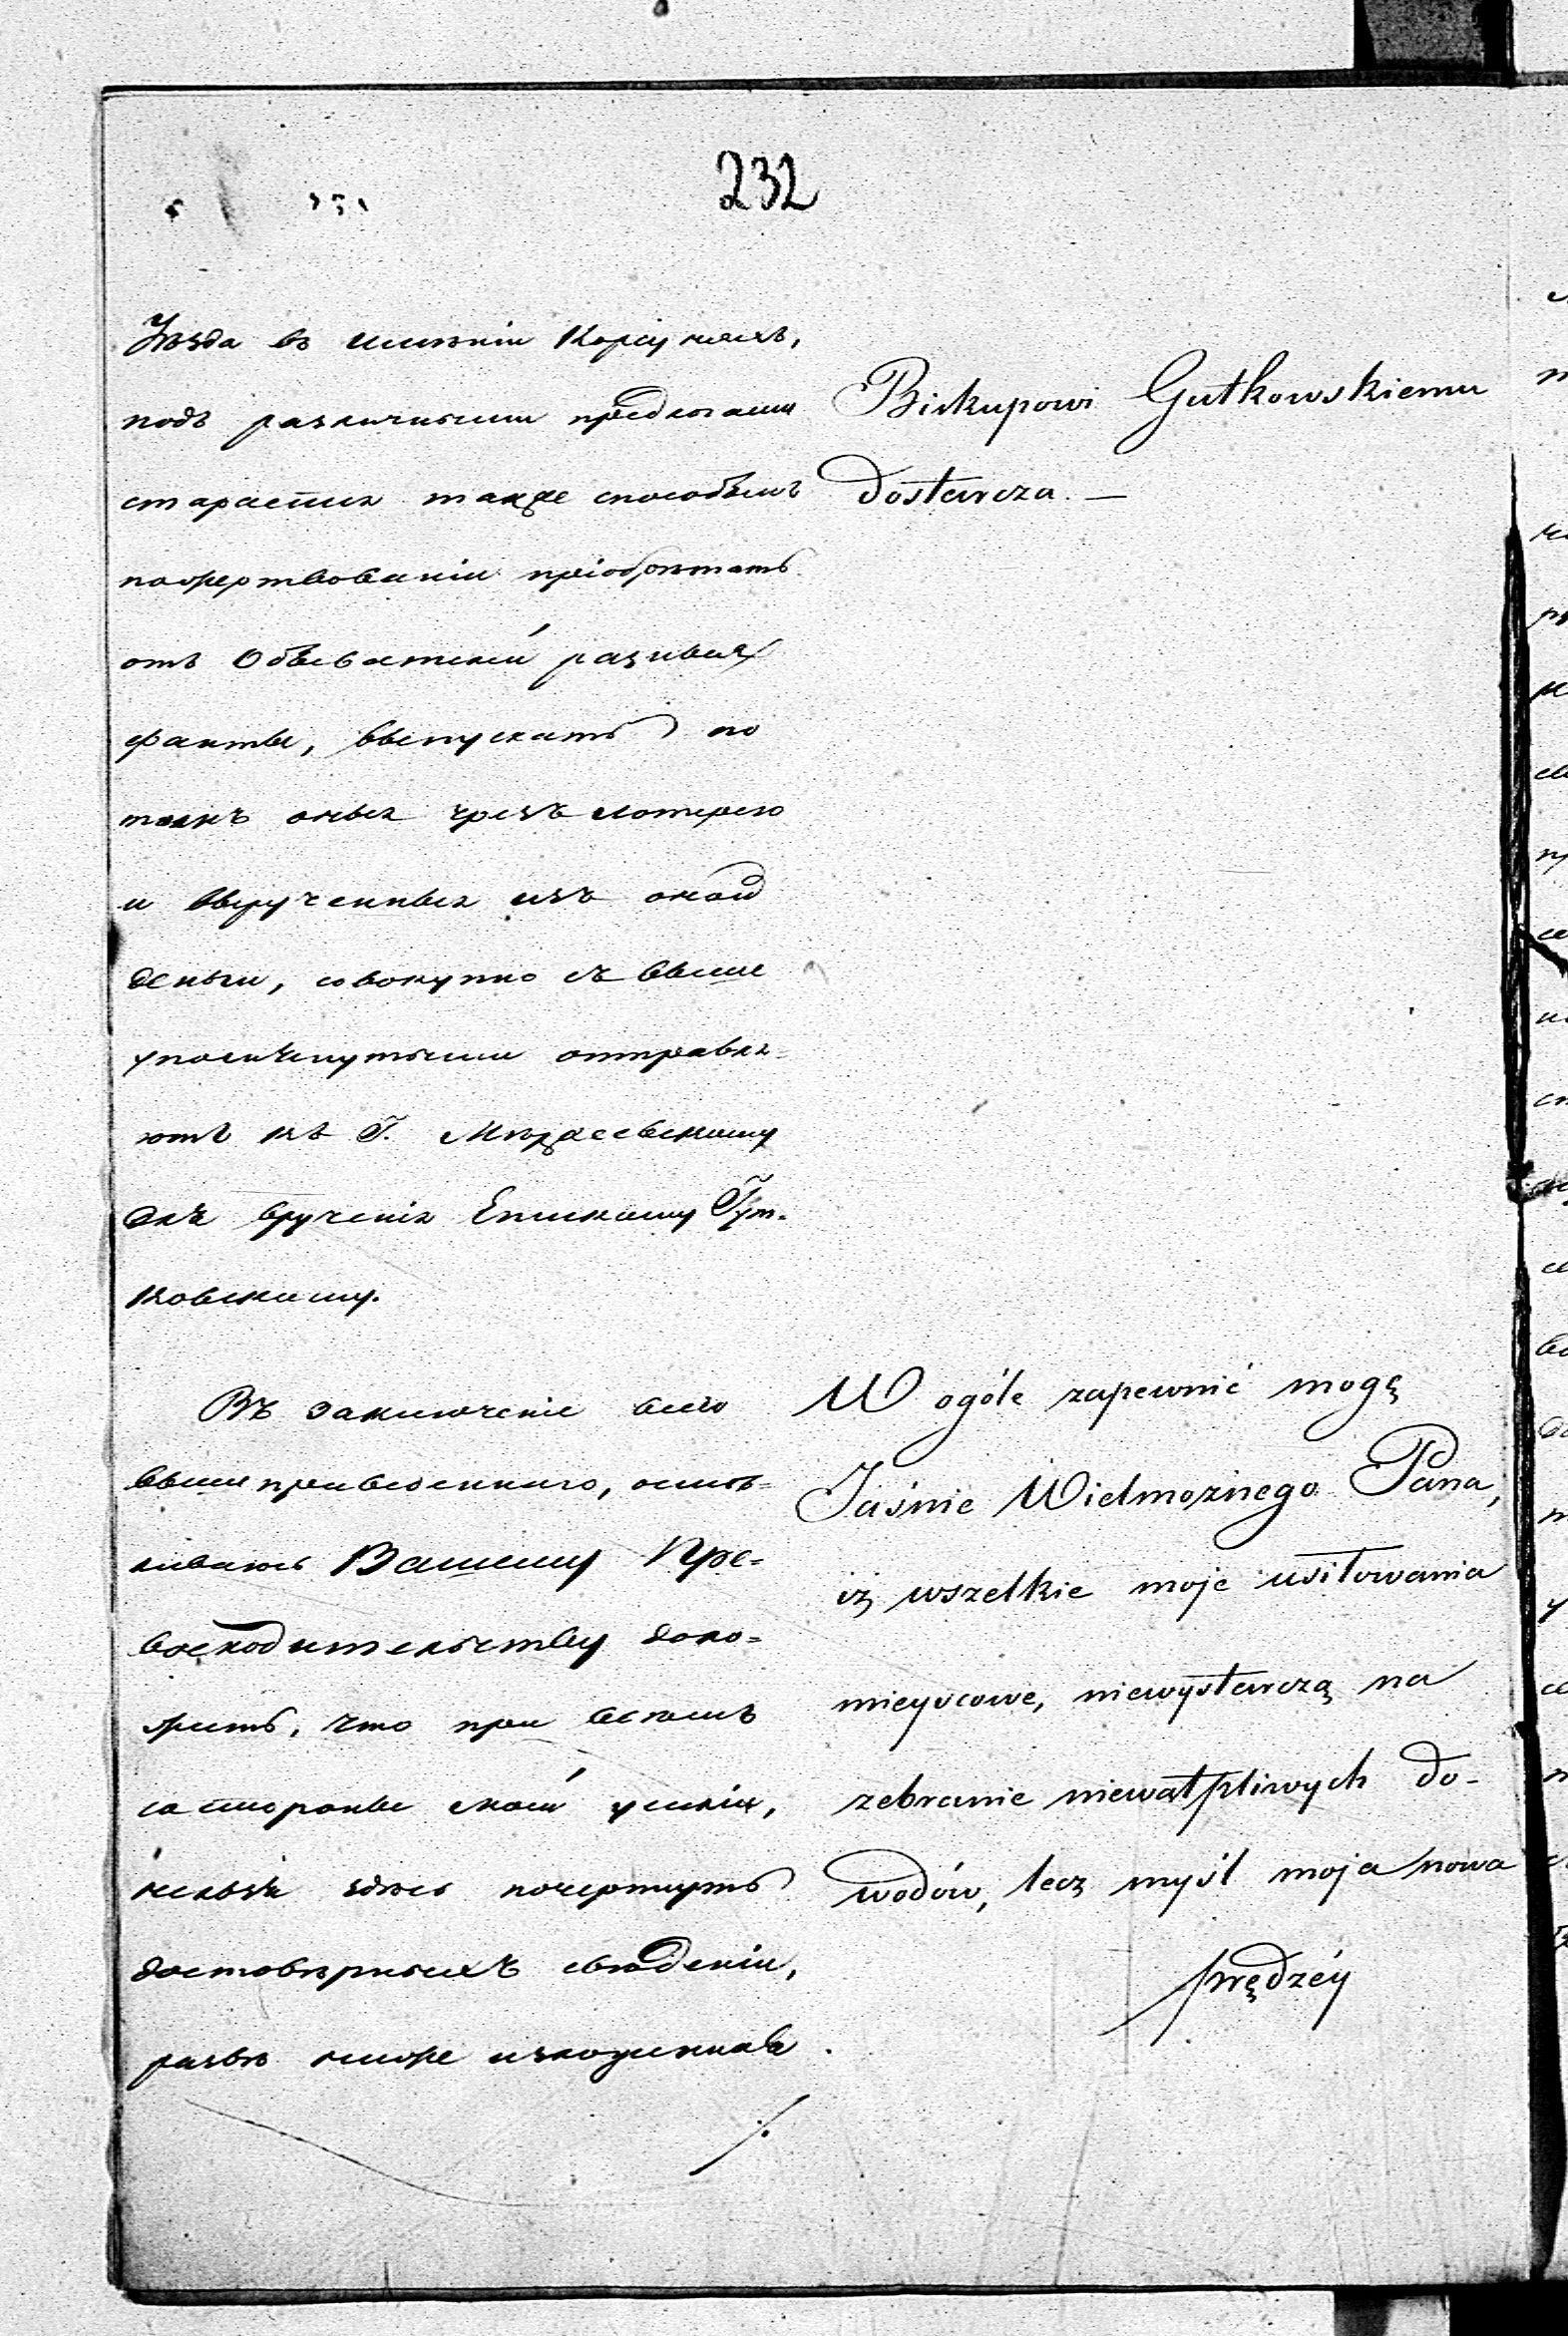 232
Уѣзда въ имѣніи Корчунахъ,
подъ различными предлогами
стараетця также способомъ
пожертвованій пріобрѣтать
отъ Обывателей разныя
фанты, выпускать по
томъ оныя чрезъ лотерею
и вырученныя изъ оной
деньги, совокупно съ выше
упомянутыми отправля-
ютъ къ Г.
для врученія Епископу Гут-
ковскому.
Въ заключеніе всего
вышеприведеннаго, осмѣ-
ливаюсь Вашему Пре-
восходительству доло-
жить, что при всѣхъ
со стороны моей усилія,
нельзя здѣсь почерпнуть
достовѣрныхъ свѣденій,
развѣ ниже изложенная
./.
Biskupowi Gutkowskiemu
dostarcza. —
W ogóle zapewnić mogę
Jaśnie Wielmożnego Pana,
iż wszelkie moje usiłowania
mieyscowe, niewystarczą na
zebranie niewątpliwych do-
wodów, lecz myśl moja nowa
prędzéy